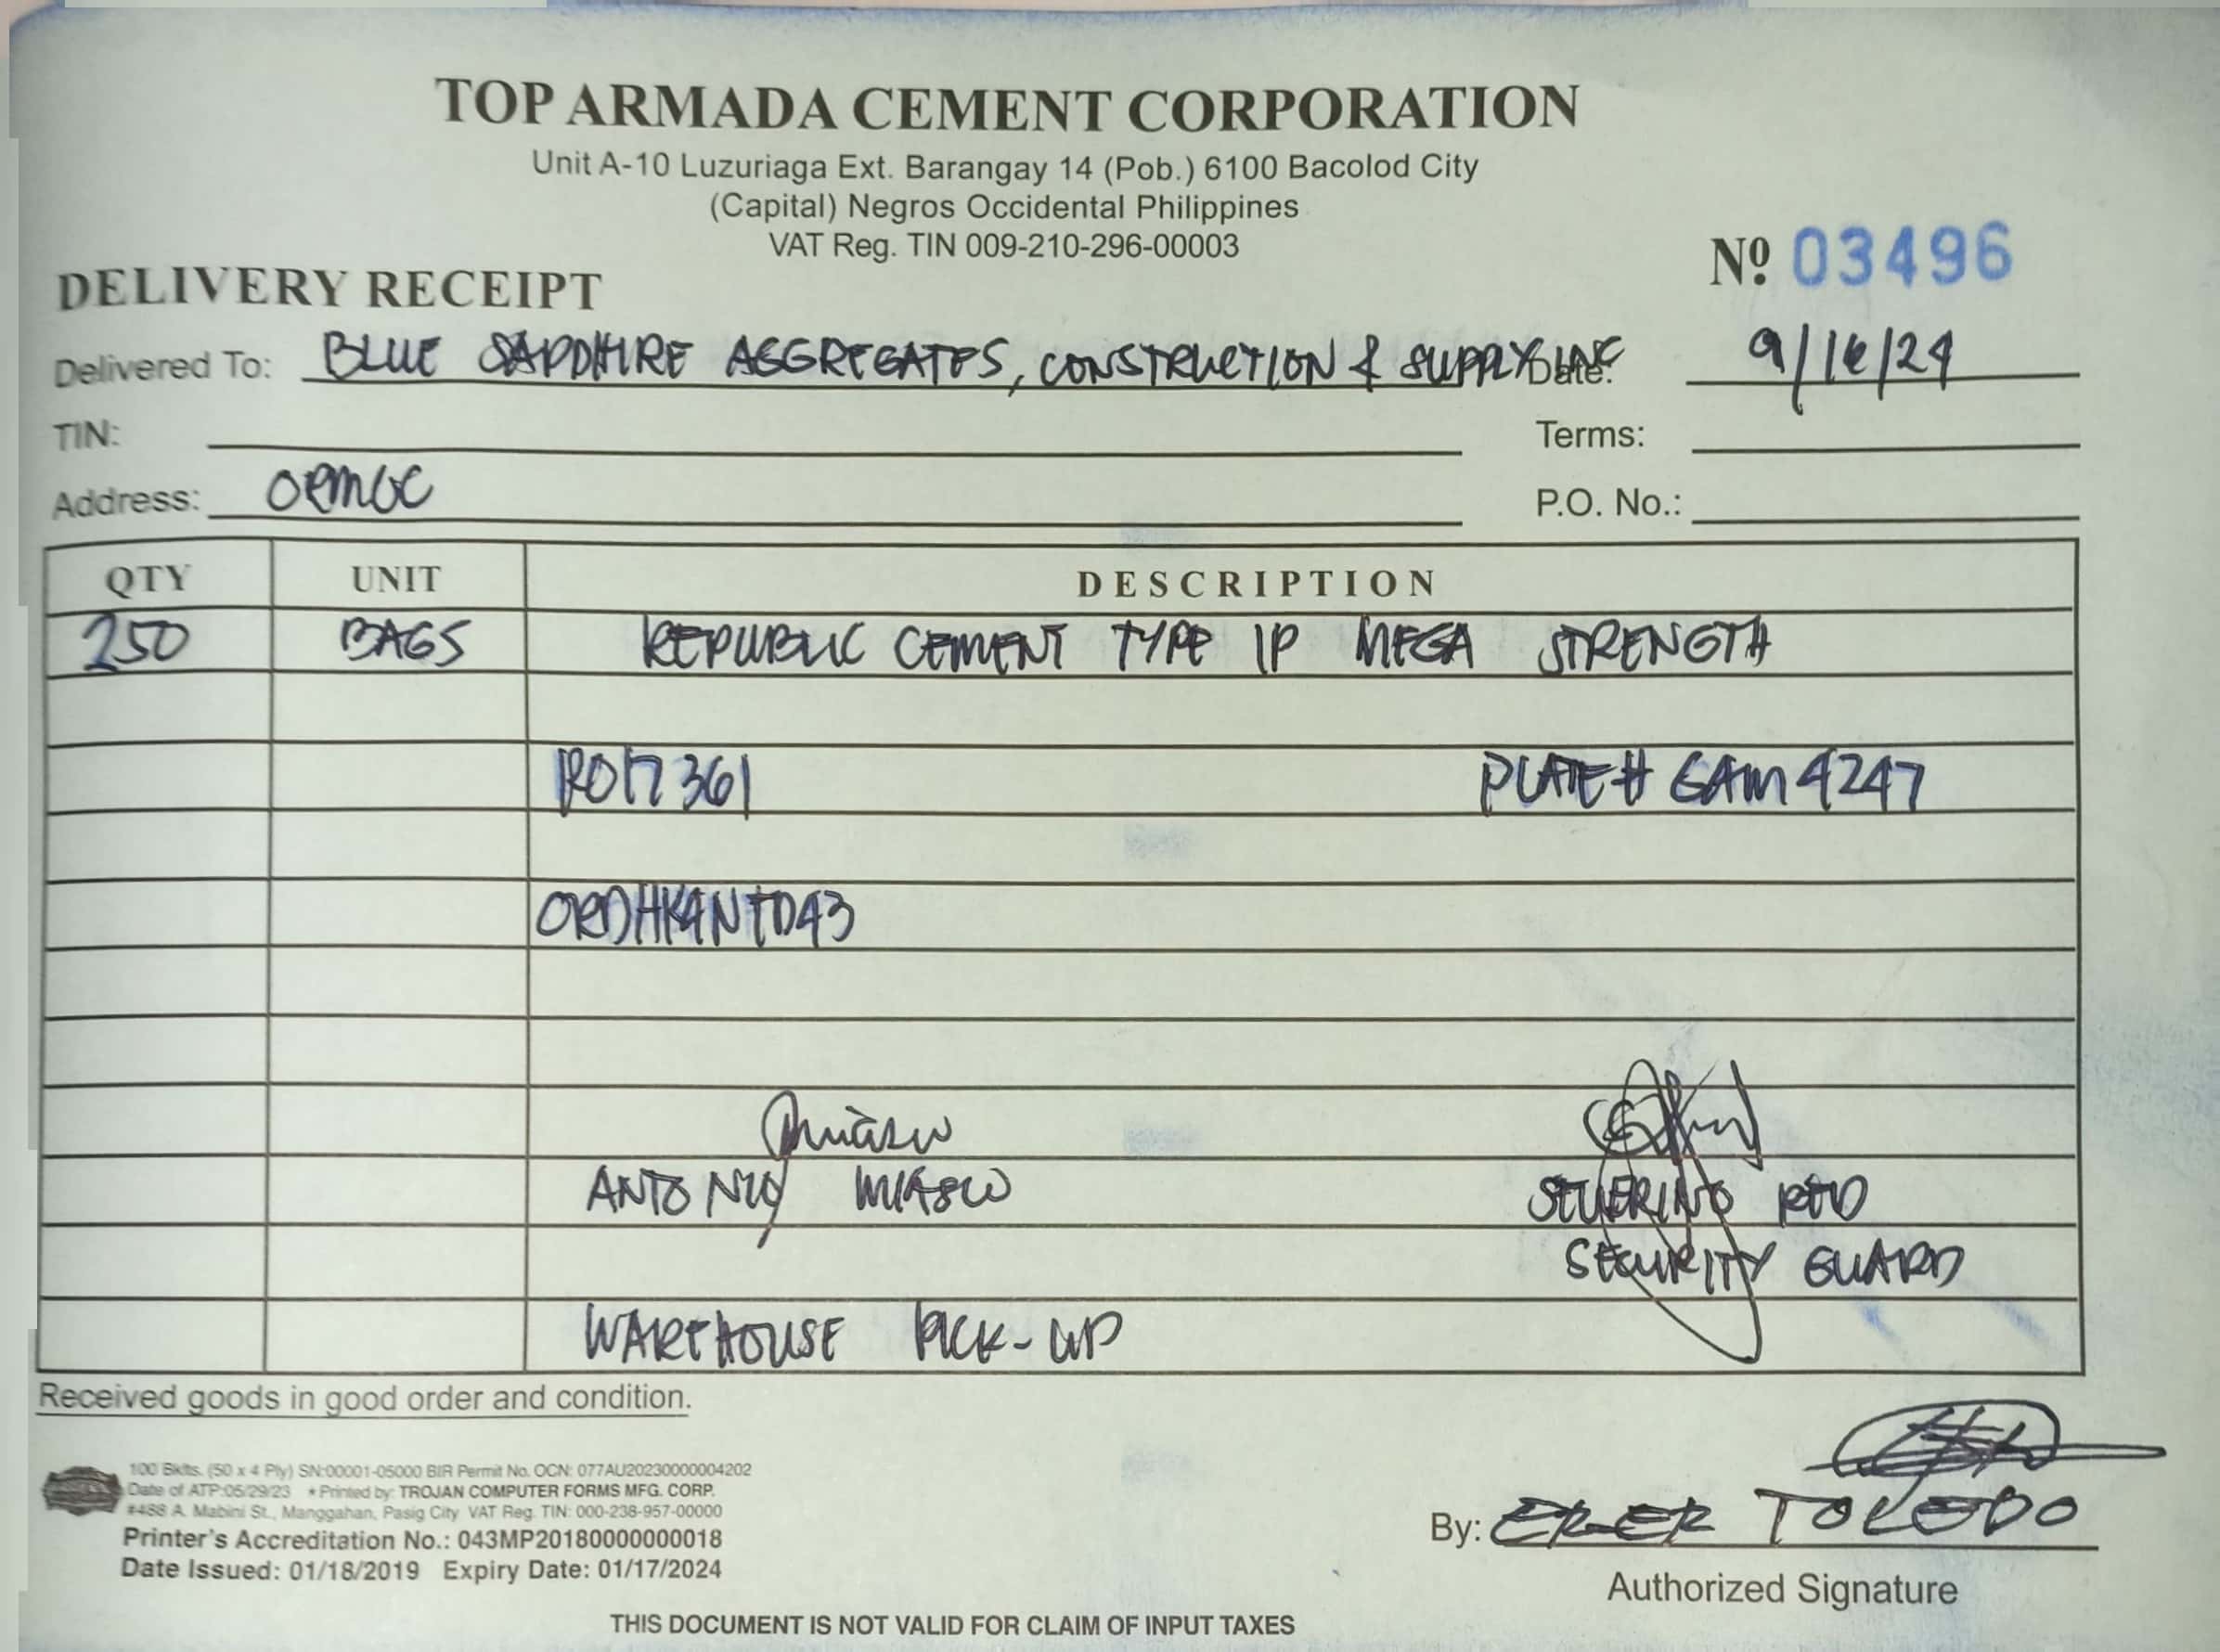 TOP ARMADA CEMENT CORPORATION
Unit A-10 Luzuriaga Ext. Barangay 14 (Pob.) 6100 Bacolod City
(Capital) Negros Occidental Philippines
VAT Reg. TIN 009-210-296-00003
Nº 03496
DELIVERY RECEIPT
Delivered To: BLUE SAPPHIRE AGGREGATES, CONSTRUCTION & SUPPLY INC Date: 9/16/24
TIN: Terms:
Address: ORMOC P.O. No.:
QTY UNIT DESCRIPTION
250 BAGS REPUBLIC CEMENT TYPE 1P MEGA STRENGTH
RO17361 PLATE # GAM 4247
ORDHK4NTD43
ANTONIO
SEVERINO
SECURITY GUARD
WAREHOUSE PICK-UP
Received goods in good order and condition.
100 Bklts. (50 x 4 Ply) SN:00001-05000 BIR Permit No. OCN: 077AU20230000004202
Date of ATP:05/29/23 * Printed by: TROJAN COMPUTER FORMS MFG. CORP.
#488 A. Mabini St., Manggahan, Pasig City VAT Reg. TIN: 000-238-957-00000
Printer's Accreditation No.: 043MP20180000000018
Date Issued: 01/18/2019 Expiry Date: 01/17/2024
By: TOLEDO
Authorized Signature
THIS DOCUMENT IS NOT VALID FOR CLAIM OF INPUT TAXES